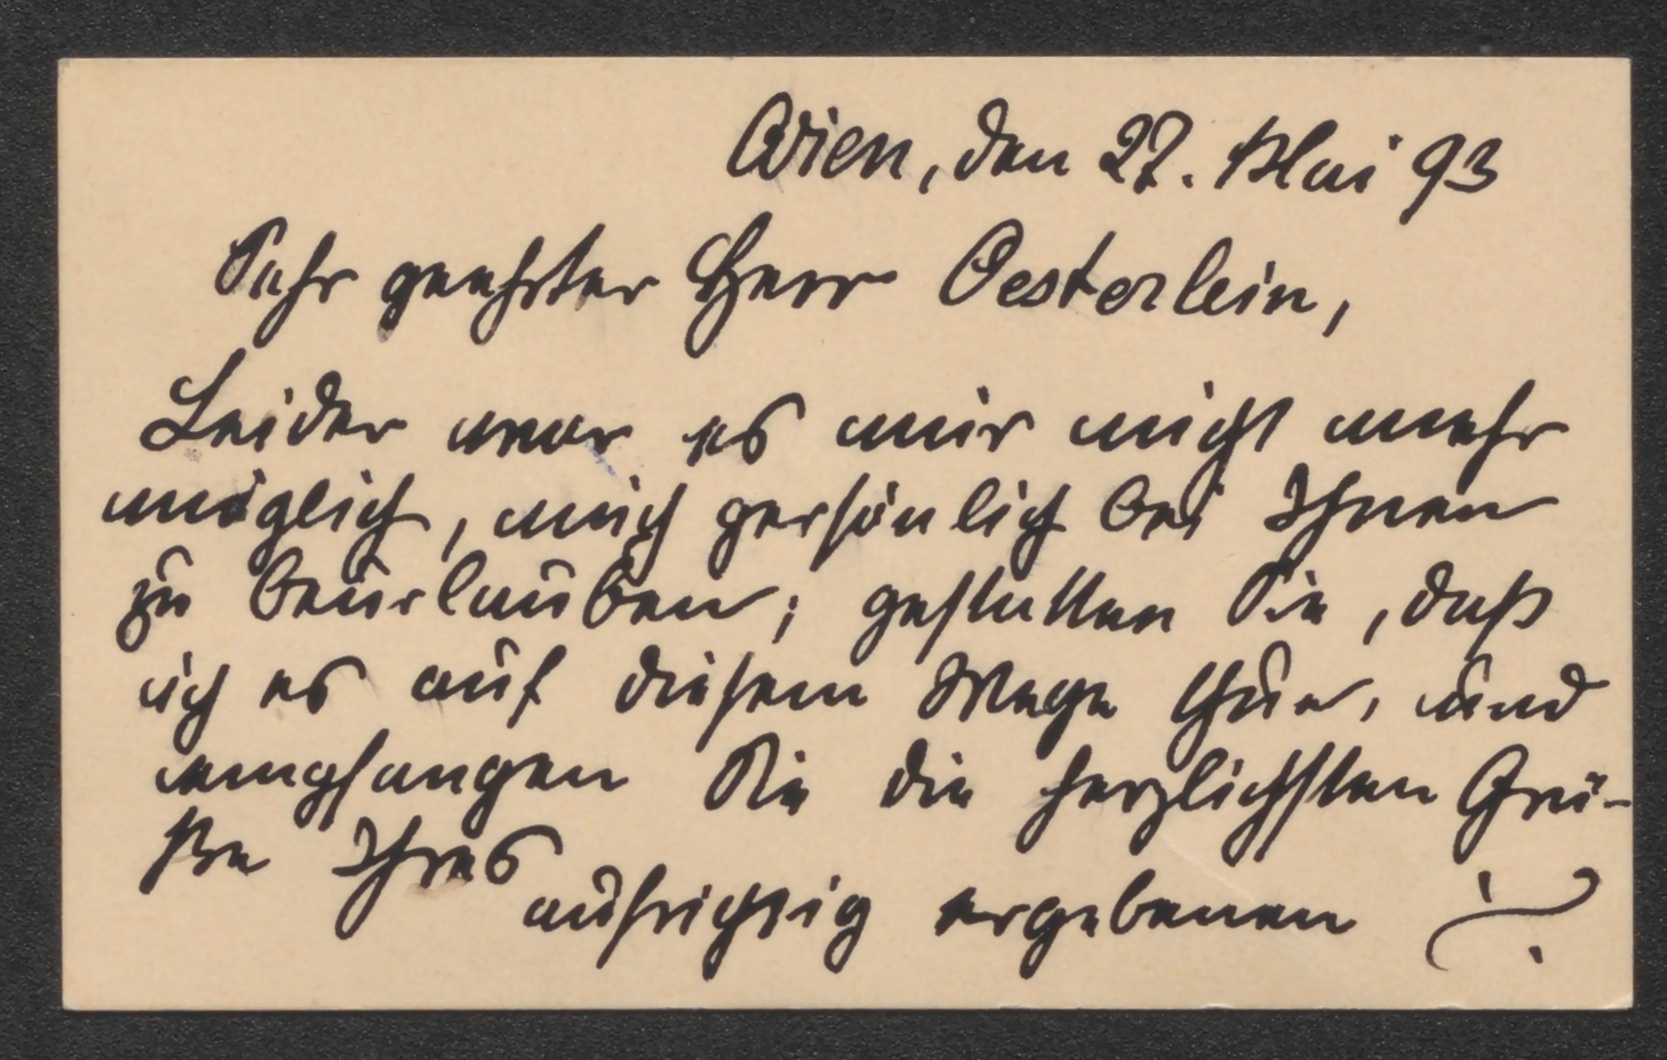 Wien, den 27. Mai 93
Sehr geehrter Herr Oesterlein,
Leider war es mir nicht mehr
möglich, mich persönlich bei Ihnen
zu beurlauben; gestatten Sie, daß
ich es auf diesem Wege thue, und
empfangen Sie die herzlichsten Grü-
ße Ihres
aufrichtig ergebenen